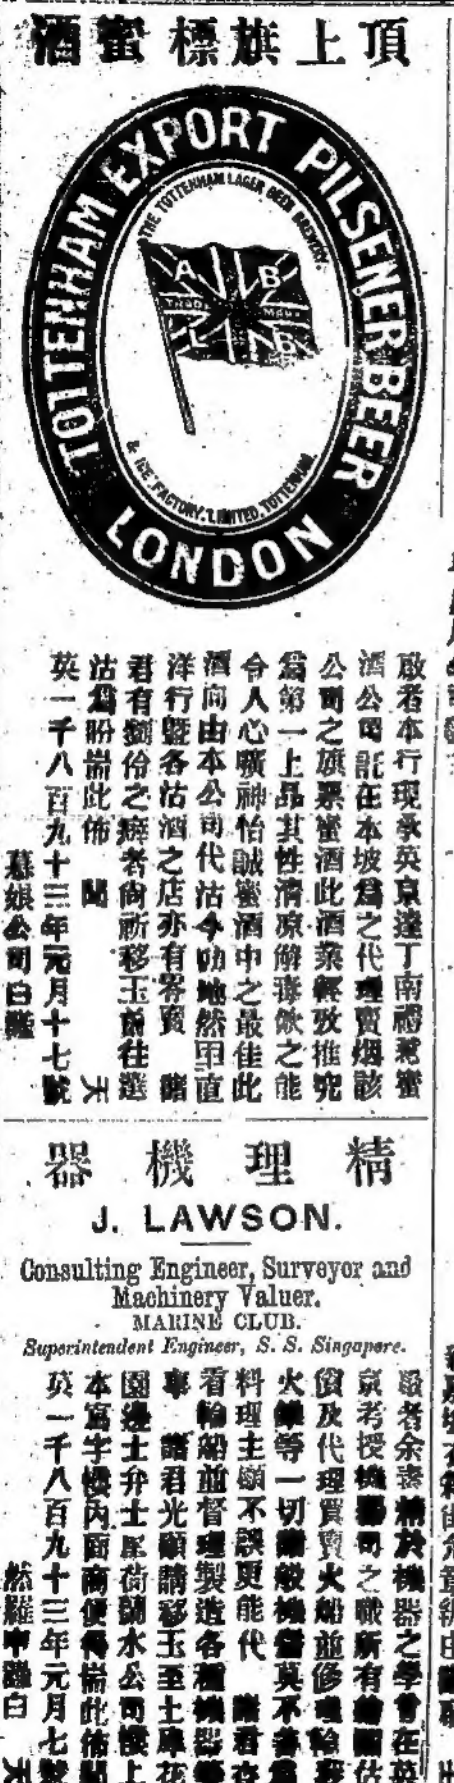 頂上旗標蜜酒
TOTTENHAM EXPORT PILSENER BEER
LONDON
THE TOTTENHAM LAGER BEER BREWERY,
& ICE FACTORY, LIMITED, TOTTENHAM.
A B
TRADE MARK
L B
啟者本行現承英京達丁南禮蜜
酒公司託在本坡爲之代理賣烟該
公司之旗票蜜酒此酒業輕攷推究
爲第一上品其性清凉解毒飲之能
令人心曠神怡誠蜜酒中之最佳此
酒向由本公司代沽今叻地然甲直
洋行曁各沽酒之店亦有寄賣 諸
君有劉伶之癖者尚祈移玉前往選
沽爲盼耑此佈 聞 天
英一千八百九十三年元月十七號
慕娘公司白
精理機器
J. LAWSON.
Consulting Engineer, Surveyor and
Machinery Valuer.
MARINE CLUB.
Superintendent Engineer, S. S. Singapore.
啟者余素精於機器之學曾在英
京考授機器司之職所有繪圖估
價及代理買賣火船並修理輪
火等一切機器莫不善
料理主顧不誤更能代 諸君查
看輪船並督理製造各種機器等
事 諸君光顧請移玉至土庫花
園邊士弁士厘荷蘭水公司樓上
本寫字樓內面商便得耑此佈聞
英一千八百九十三年元月七號
然羅申白 天